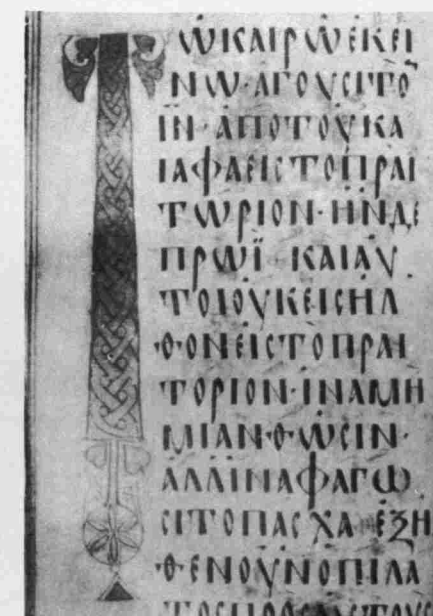 ΤΩΚΑΙΡΩΕΚΕΙ
ΝΩ·ΑΓΟΥϹΙΤΟ
ΙΝ·ΑΠΟΤΟΥΚΑ
ΙΑΦΑΕΙϹΤΟΠΡΑΙ
ΤΩΡΙΟΝ·ΗΝΔΕ
ΠΡΩΪ·ΚΑΙΑΥ
ΤΟΙΟΥΚΕΙϹΗΛ
ΘΟΝΕΙϹΤΟΠΡΑΙ
ΤΟΡΙΟΝ·ΙΝΑΜΗ
ΜΙΑΝΘΩϹΙΝ·
ΑΛΛΙΝΑΦΑΓΩ
ϹΙΤΟΠΑϹΧΑ·ΕΞΗ
ΘΕΝΟΥΝΟΠΙΛΑ